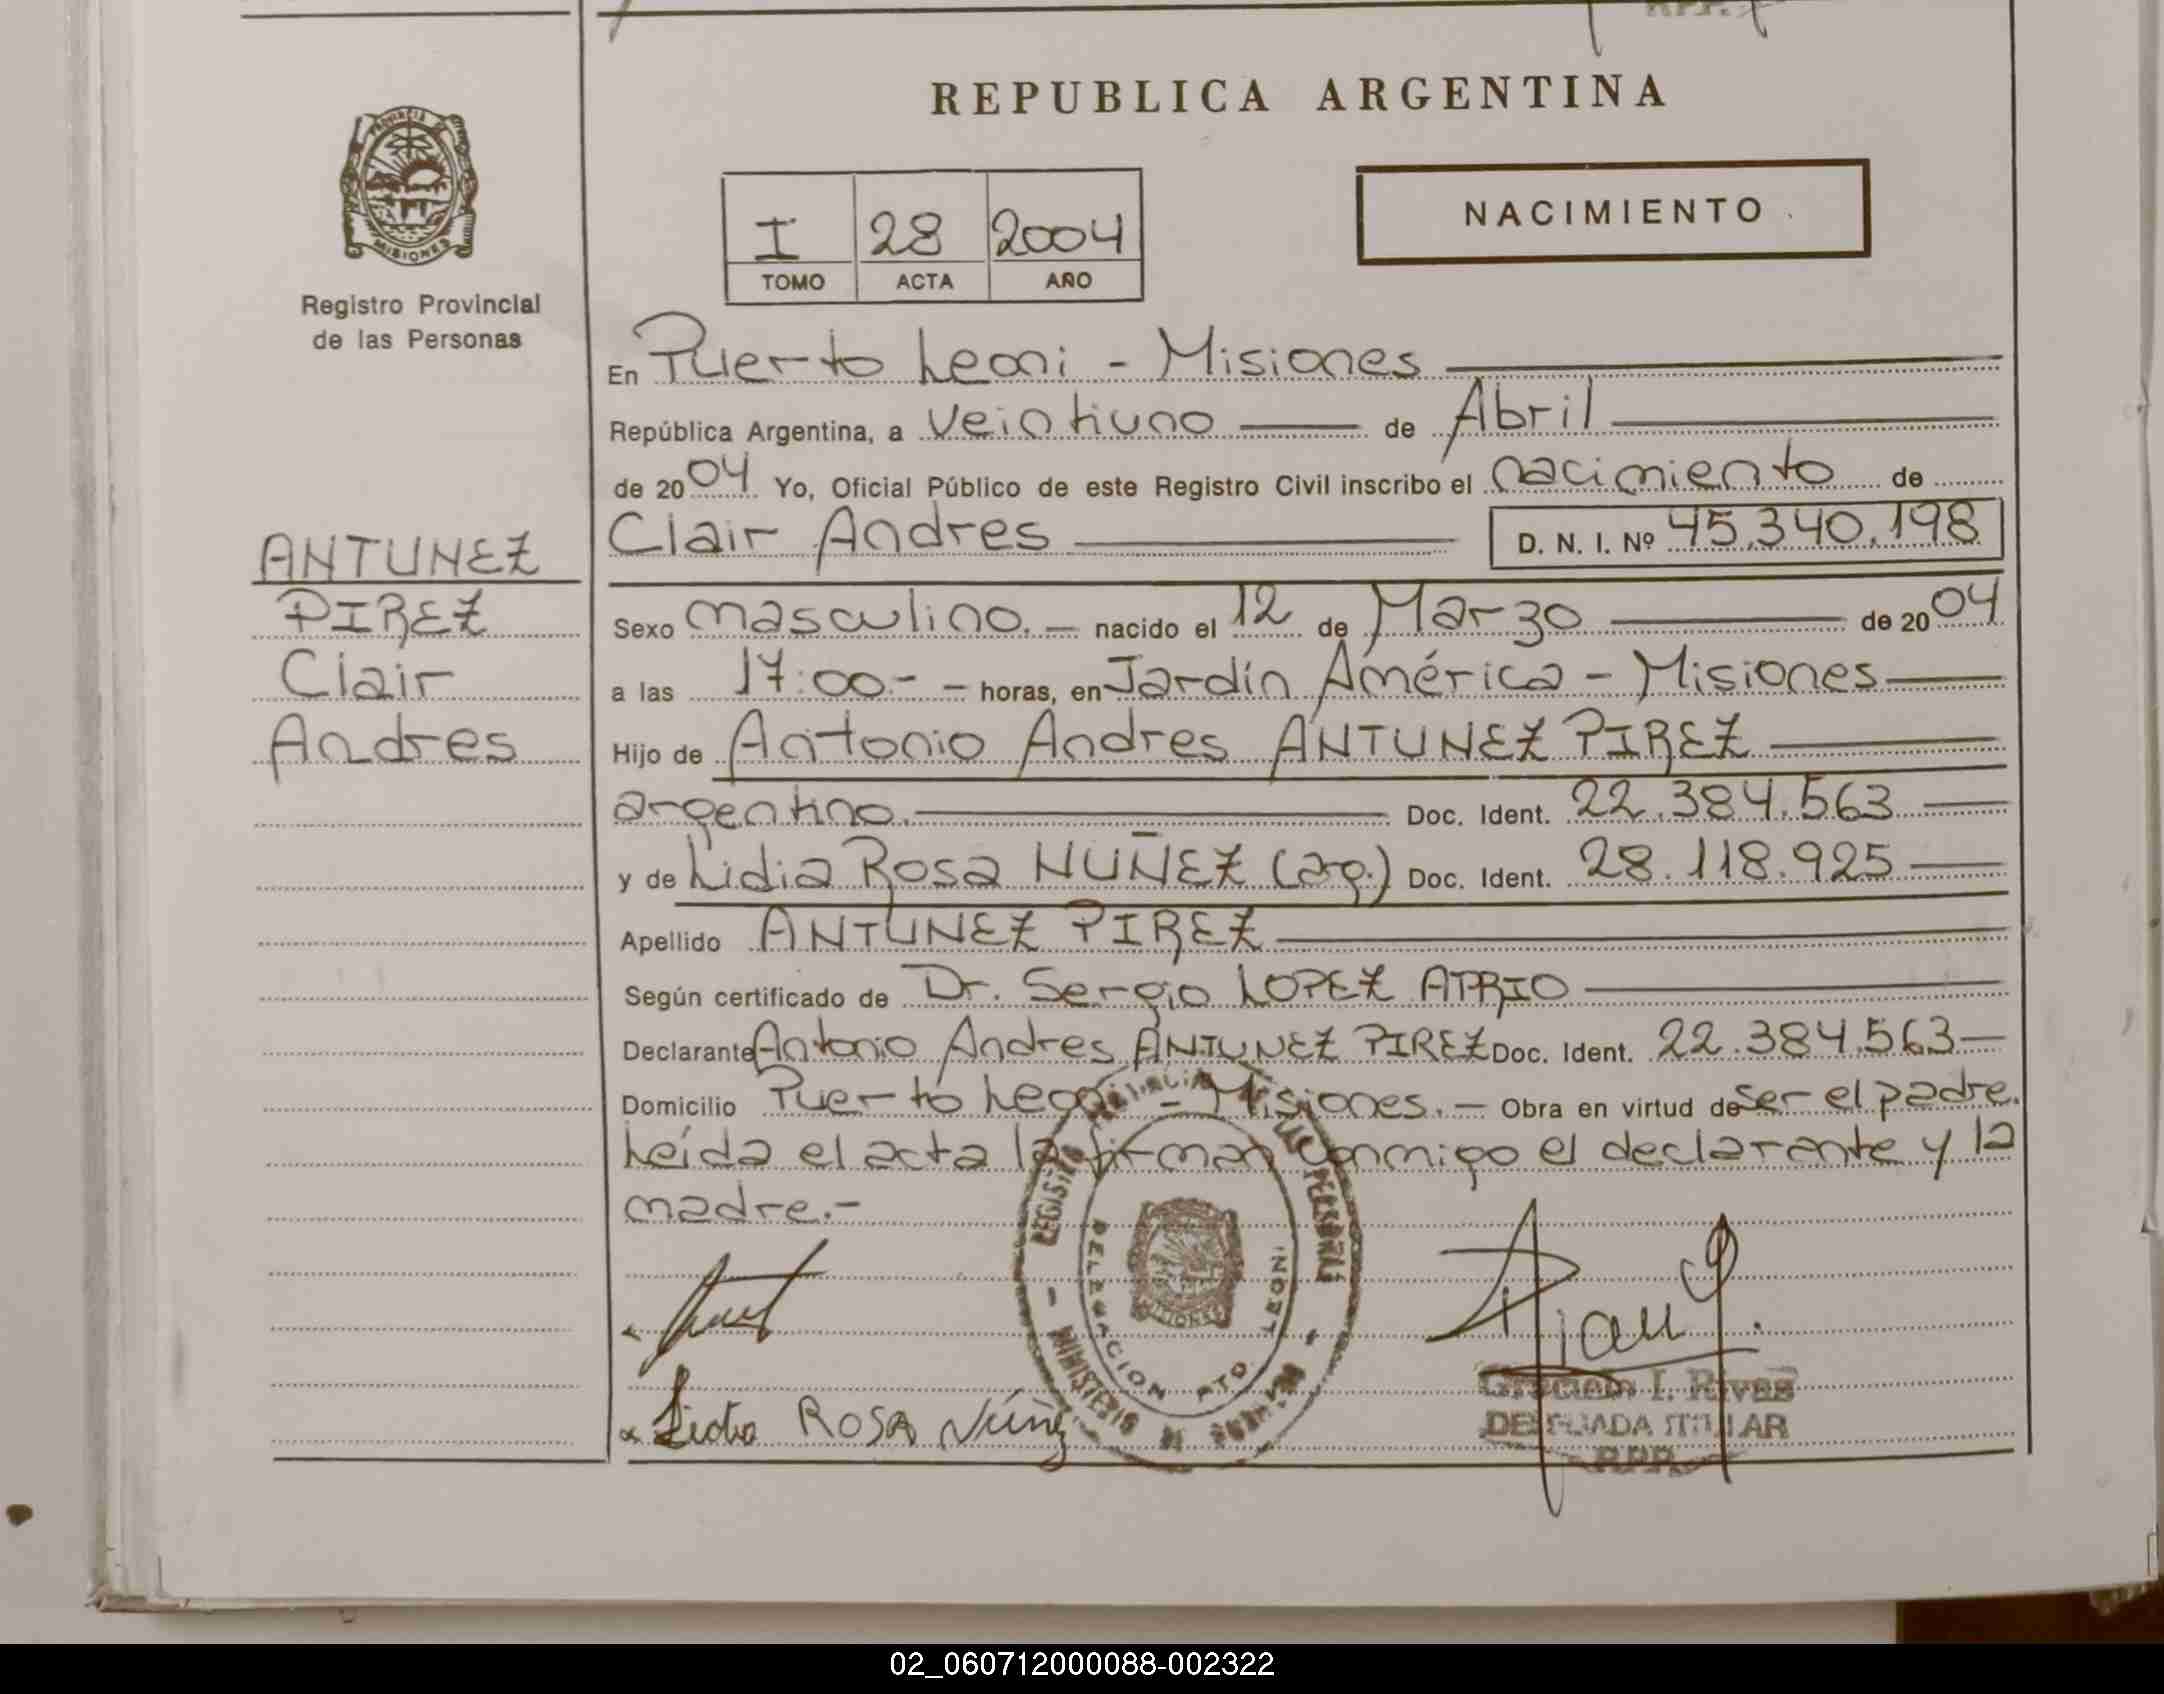 REPUBLICA ARGENTINA
PROVINCIA DE
MISIONES
Registro Provincial
de las Personas
NACIMIENTO
I 28 2004
TOMO ACTA AÑO
En Puerto Leoni - Misiones
República Argentina, a veintiuno de Abril
de 2004 Yo, Oficial Público de este Registro Civil inscribo el nacimiento de
Clair Andres D. N. I. Nº 45.340.198
ANTUNEZ
PIREZ
Clair
Andres
Sexo masculino.- nacido el 12 de Marzo de 2004
a las 17:00.- - horas, en Jardín América - Misiones
Hijo de Antonio Andres ANTUNEZ PIREZ
argentino. Doc. Ident. 22.384.563
y de Lidia Rosa NUÑEZ (arg.) Doc. Ident. 28.118.925
Apellido ANTUNEZ PIREZ
Según certificado de Dr. Sergio LOPEZ ATRIO
Declarante Antonio Andres ANTUNEZ PIREZ Doc. Ident. 22.384.563-
Domicilio Puerto Leoni - Misiones.- Obra en virtud de ser el padre.
Leída el acta la firman conmigo el declarante y la
madre.-
DELEGACION PTO. LEONI
MISIONES
Lidia ROSA Núñez
Graciela I. Rivas
DELEGADA TITULAR
R.P.P.
02_060712000088-002322